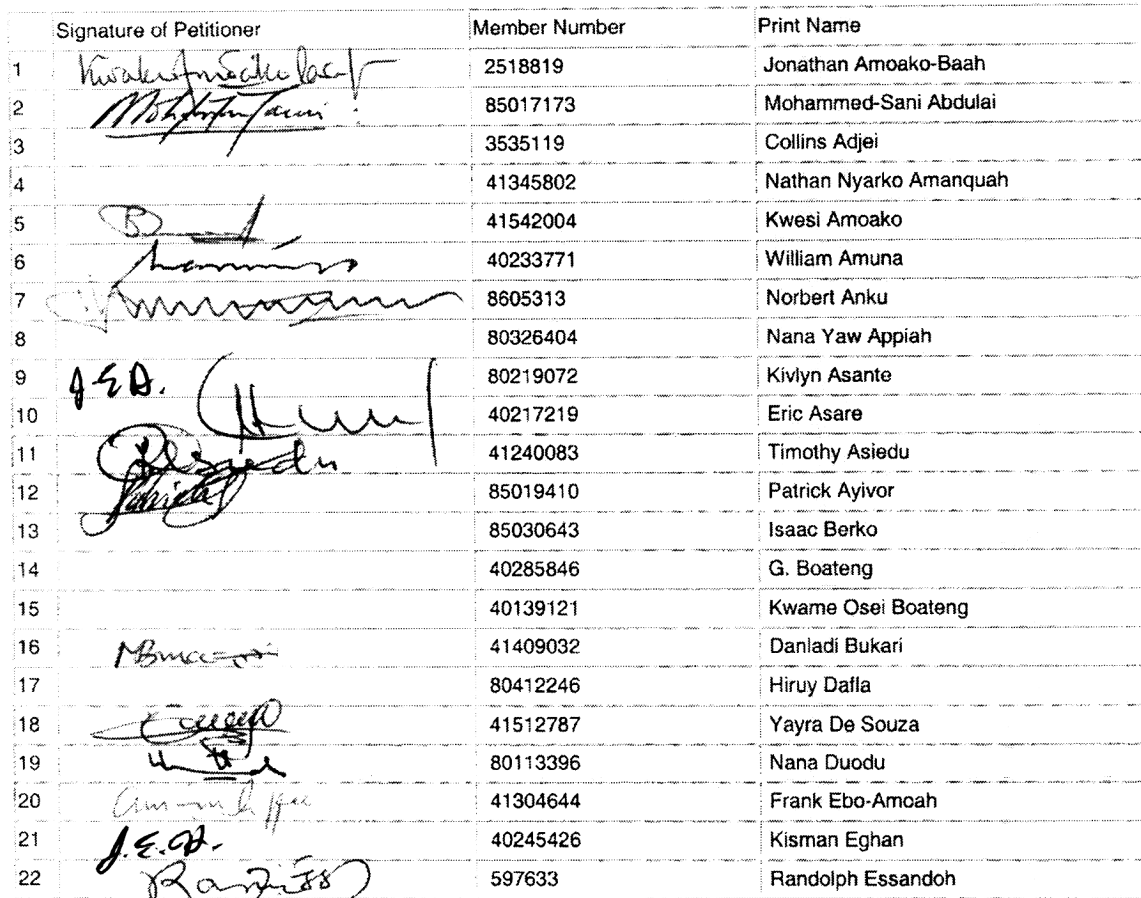 Signature of Petitioner Member Number Print Name
1 2518819 Jonathan Amoako-Baah
2 85017173 Mohammed-Sani Abdulai
3 3535119 Collins Adjei
4 41345802 Nathan Nyarko Amanquah
5 41542004 Kwesi Amoako
6 40233771 William Amuna
7 8605313 Norbert Anku
8 80326404 Nana Yaw Appiah
9 J.E.A. 80219072 Kivlyn Asante
10 40217219 Eric Asare
11 41240083 Timothy Asiedu
12 85019410 Patrick Ayivor
13 85030643 Isaac Berko
14 40285846 G. Boateng
15 40139121 Kwame Osei Boateng
16 41409032 Danladi Bukari
17 80412246 Hiruy Dafla
18 41512787 Yayra De Souza
19 80113396 Nana Duodu
20 41304644 Frank Ebo-Amoah
21 J.E.A. 40245426 Kisman Eghan
22 597633 Randolph Essandoh